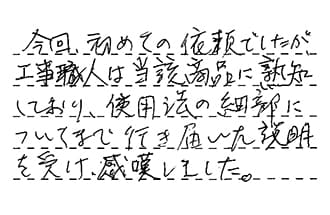 今回、初めての依頼でしたが
工事職人は当該商品に熟知
しており、使用法の細部に
ついてまで行き届いた説明
を受け、感嘆しました。